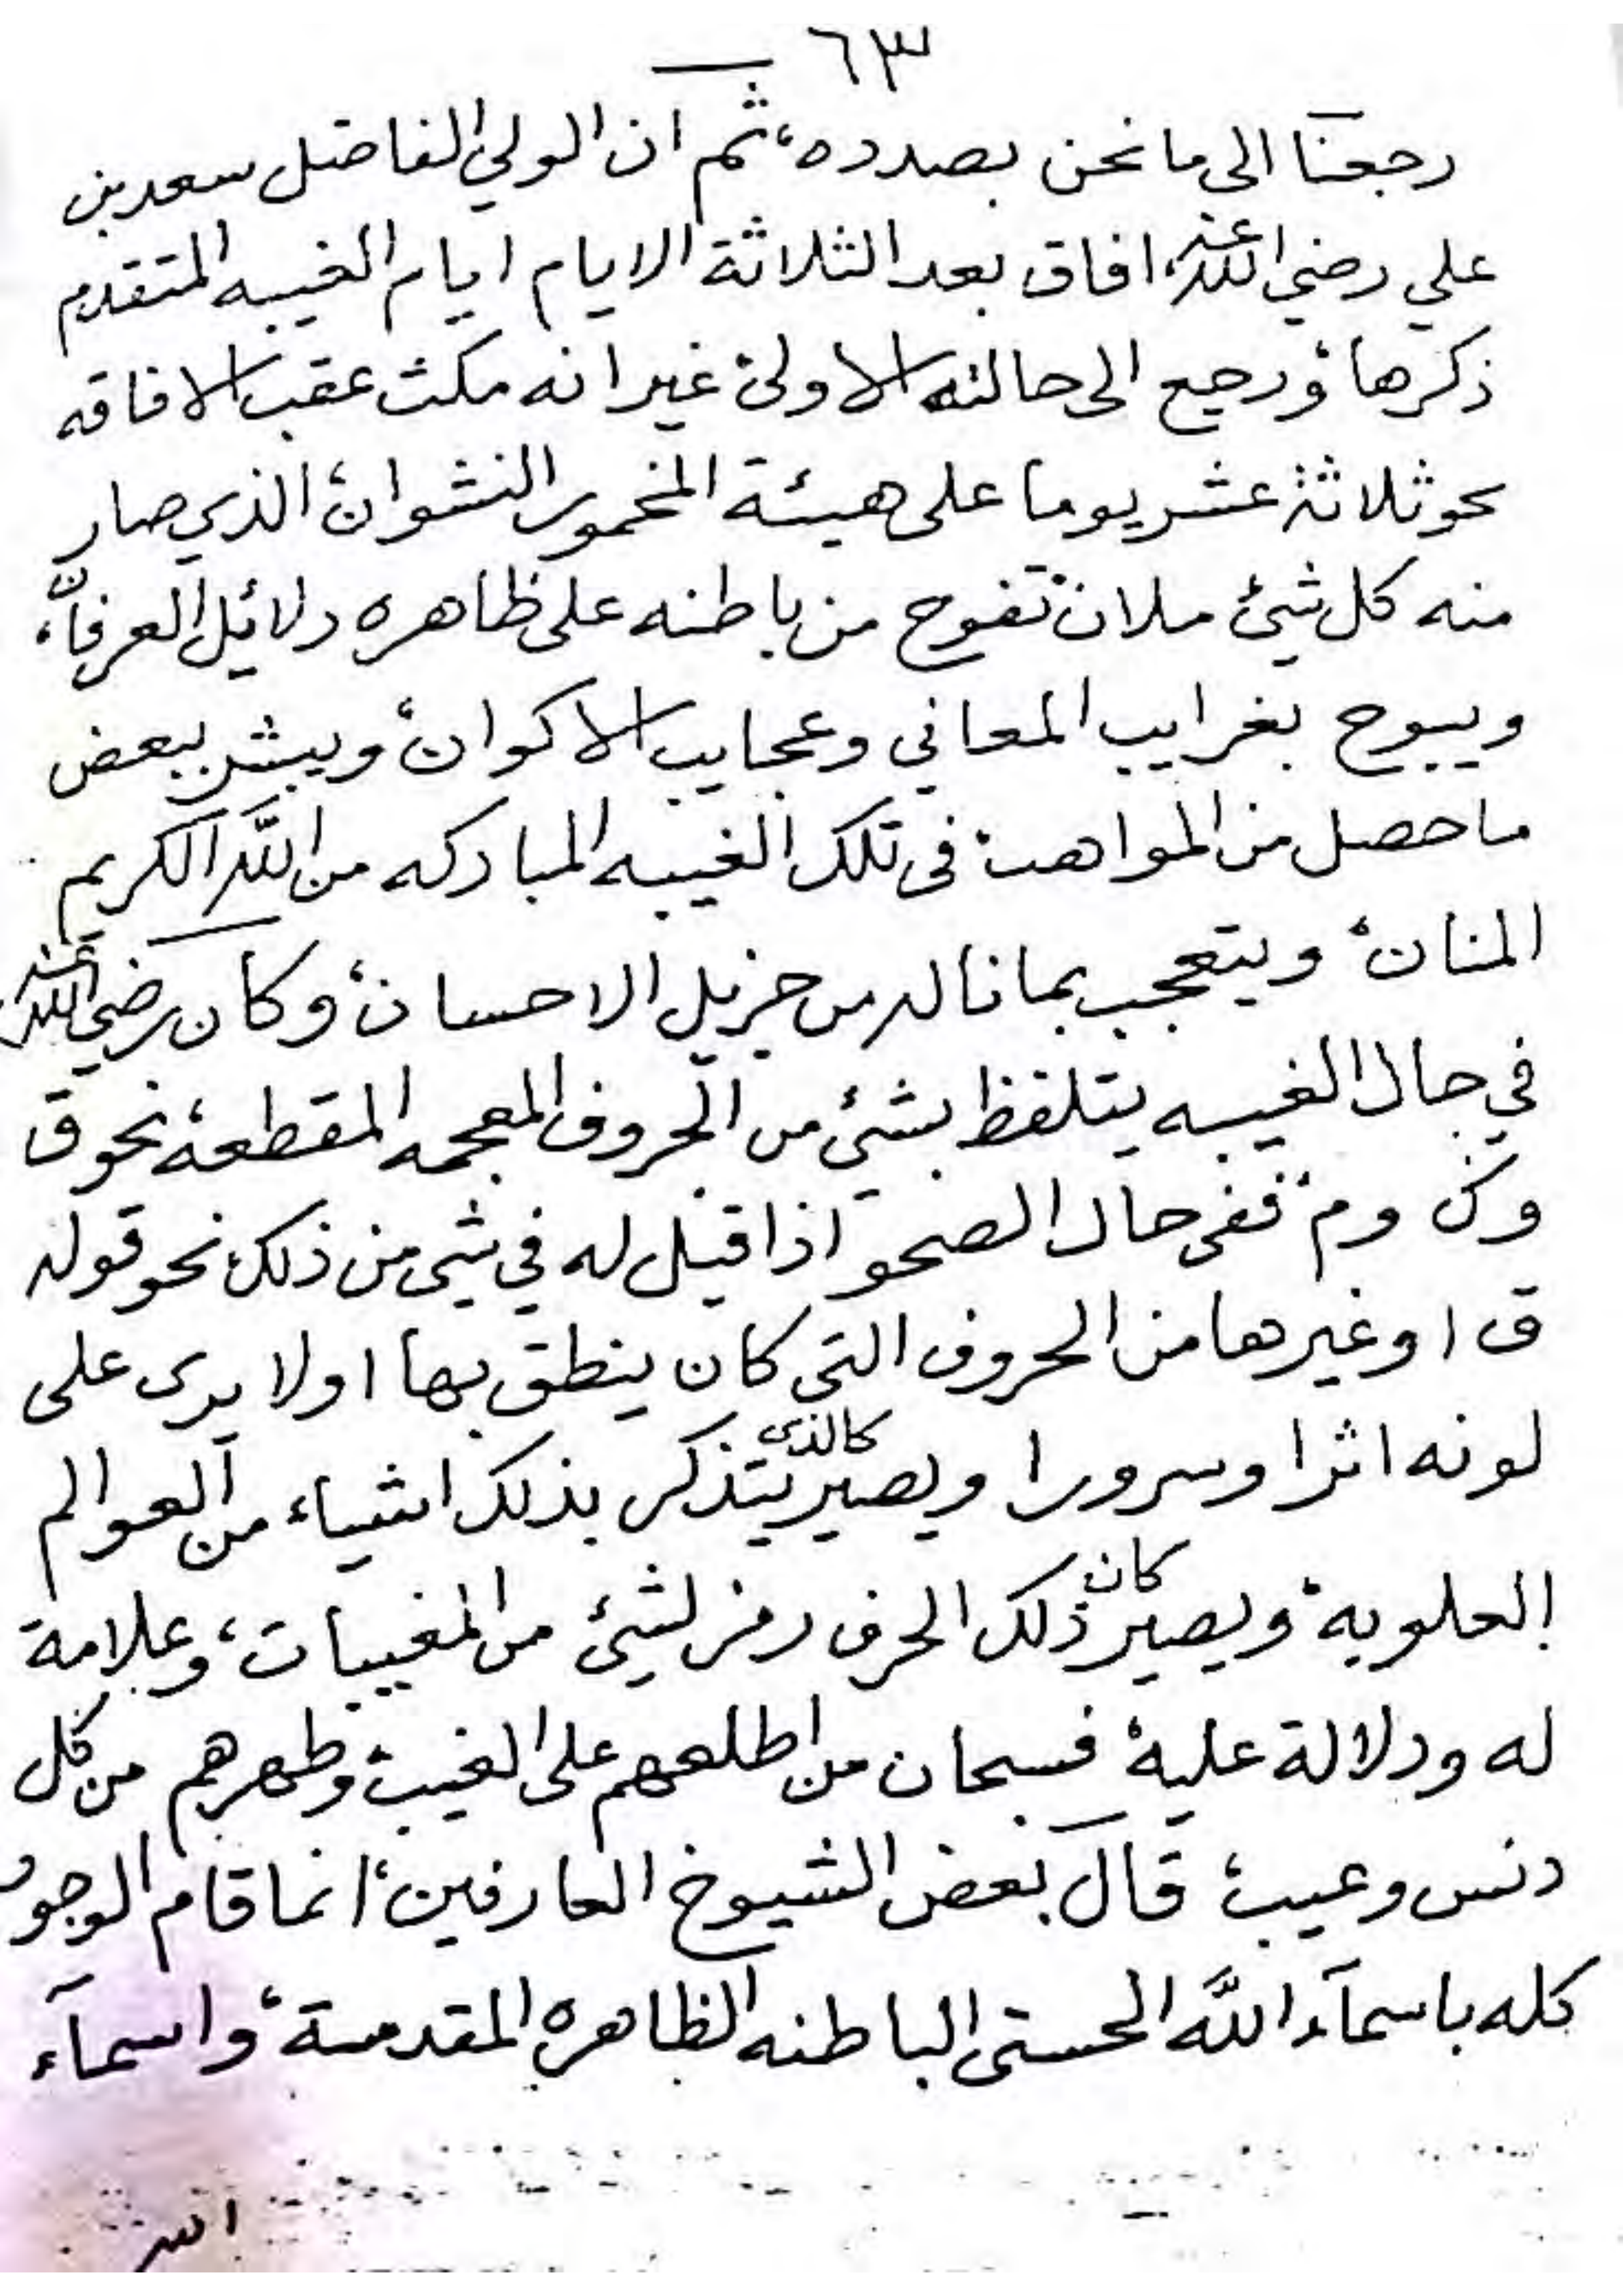 ٦٣
رجعنا الى ما نحن بصدده، ثم ان الولي الفاضل سعد بن
علي رضي الله عنه، افاق بعد الثلاثة الايام ايام الغيبه المتقدم
ذكرها، ورجع الى حالته الاولى، غير انه مكث عقب الافاقه
نحو ثلاثة عشر يوما على هيئة المخمور النشوان، الذي صار
منه كل شئ ملان، تفوح من باطنه على ظاهره دلائل العرفان،
ويبوح بغرايب المعاني وعجايب الاكوان، ويبشر ببعض
ما حصل من المواهب، في تلك الغيبه المباركه من الله الكريم
المنان، ويتعجب بما ناله من جزيل الاحسان، وكان رضي الله عنه
في حال الغيبه يتلفظ بشئ من الحروف المعجمه المقطعة، نحو ق
وك وم، ففي حال الصحو اذا قيل له في شي من ذلك نحو قوله
ق او غيرها من الحروف التي كان ينطق بها اولا يرى على
لونه اثرا وسرورا ويصير كالذي يتذكر بذلك اشياء من العوالم
العلوية، ويصير كان ذلك الحرف رمز لشئ من المغيبات، وعلامة
له ودلالة عليه، فسبحان من اطلعهم على الغيب، وطهرهم من كل
دنس وعيب، قال بعض الشيوخ العارفين، انما قام الوجود
كله باسمآء الله الحسنى الباطنه الظاهره المقدسة، واسمآء